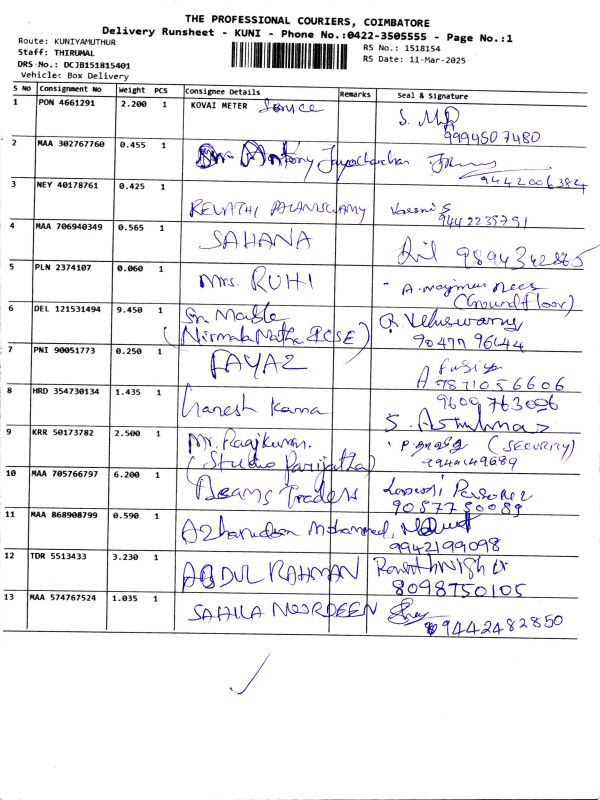 THE PROFESSIONAL COURIERS, COIMBATORE
Delivery Runsheet - KUNI - Phone No.:0422-3505555 - Page No.:1
Route: KUNIYAMUTHUR
RS No.: 1518154
Staff: THIRUMAL
RS Date: 11-Mar-2025
DRS No.: DCJB151815401
Vehicle: Box Delivery
S No Consignment No Weight PCS Consignee Details Remarks Seal & Signature
1 PON 4661291 2.200 1 KOVAI METER Service S.
9994507480
2 MAA 302767760 0.455 1 Antony
9442006384
3 NEY 40178761 0.425 1 REVATHI PALANISWAMY
9442239791
4 MAA 706940349 0.565 1 SAHANA 9894342885
5 PLN 2374107 0.060 1 Mrs. RUHI
(Ground floor)
6 DEL 121531494 9.450 1 Sr. Mable Q. Veluswamy
(Nirmala Matha ICSE) 9047796644
7 PNI 90051773 0.250 1 FAYAZ
9871056606
8 HRD 354730134 1.435 1 Ganesh Kama 9600763006
S.
9 KRR 50173782 2.500 1 Mr. Rajkumar. (SECURITY)
(Studio Parijatha) 9944149689
10 MAA 705766797 6.200 1 Beams Traders
9087750089
11 MAA 868908799 0.590 1 Azharudeen Mohammed,
9942199098
12 TDR 5513433 3.230 1 ABDUL RAHMAN
8098750105
13 MAA 574767524 1.035 1 SAHILA NOORDEEN
9442482850